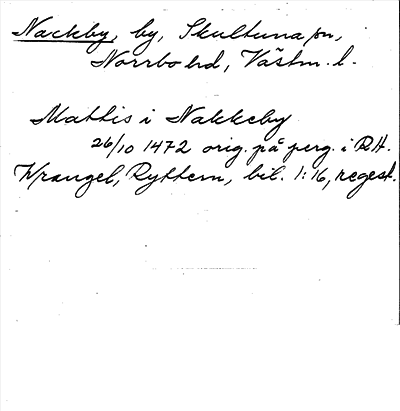 Nackby, by, Skultuna sn,
Norrbo hd, Västm. l.
Mattis i Nakkeby
26/10 1472 orig. på perg. i RA.
Wrangel, Ryttern, bil. 1:16, regest.